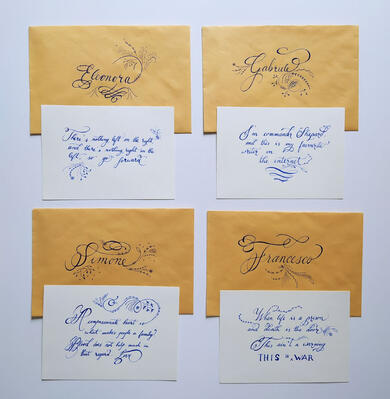 Eleonora
There is nothing left on the right
and there's nothing right on the
left, so go forward
Gabriele
I'm commander Shepard,
and this is my favourite
writer on
the internet
Simone
A compassionate heart is
what makes people a family?
Blood does not help much in
that regard
Francesco
When life is a prison
and death is the door
This ain't a warning
THIS IS A WAR